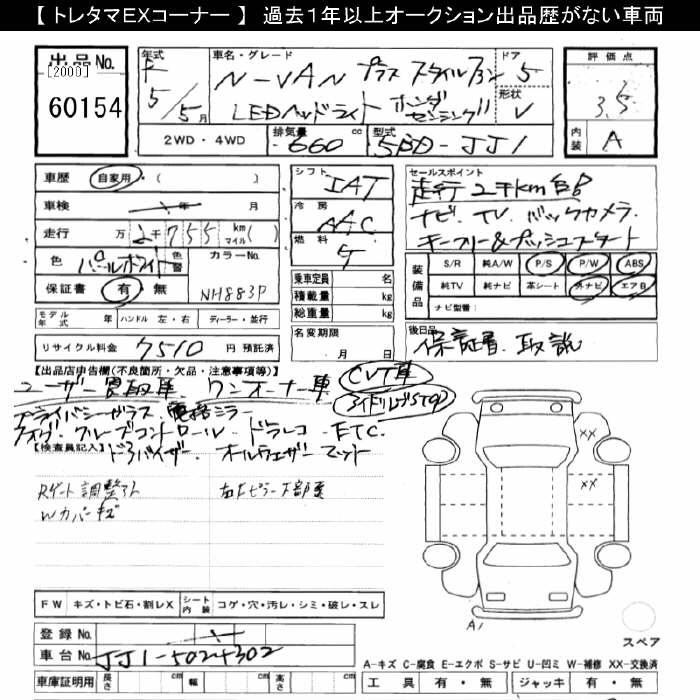 【 トレタマEXコーナー 】 過去1年以上オークション出品歴がない車両
出品No.
[2000]
60154
年式
車名・グレード
ドア
評価点
R
5/5月
N-VAN プラス スタイル ファン
5
LEDヘッドライト ホンダセンシング
形状
V
3.5
内装
A
2WD・4WD
排気量
660 cc
型式
5BD-JJ1
車歴
自家用・( )
車検
年 月
走行
万 2千755 km マイル( )
色
パールホワイト
色替
カラーNo.
NH883P
保証書
有・無
シフト
IAT
冷房
AAC
燃料
乗車定員 名
積載量 kg
総重量 kg
セールスポイント
走行2千km台
ナビ. TV. バックカメラ
キーフリー&プッシュスタート
装備品
S/R 純A/W P/S P/W ABS
純TV 純ナビ 革シート 外ナビ エアB
ナビ型番
モデル年式 年 ハンドル 左・右 ディーラー・並行
リサイクル料金
7510 円 預託済
名変期限
月 日
後日品
保証書. 取説
【出品店申告欄(不良箇所・欠品・注意事項等)】
ユーザー買取車 ワンオーナー車 CVT車
アイドリングSTOP
プライバシーガラス 電格ミラー
フォグ. クルーズコントロール. ドラレコ. ETC
【検査員記入】
ドアバイザー. オールウェザーマット
Rゲート調整アト
右Fピラー下部歪
Wカバーキズ
××
××
A1
FW キズ・トビ石・割レX
シート内装 コゲ・穴・汚レ・シミ・破レ・スレ
登録No.
車台No.
JJ1-5024302
車庫証明用
長さ cm 幅 cm 高さ cm
スペア
A-キズ C-腐食 E-エクボ S-サビ U-凹ミ W-補修 XX-交換済
工具 有・無 ジャッキ 有・無